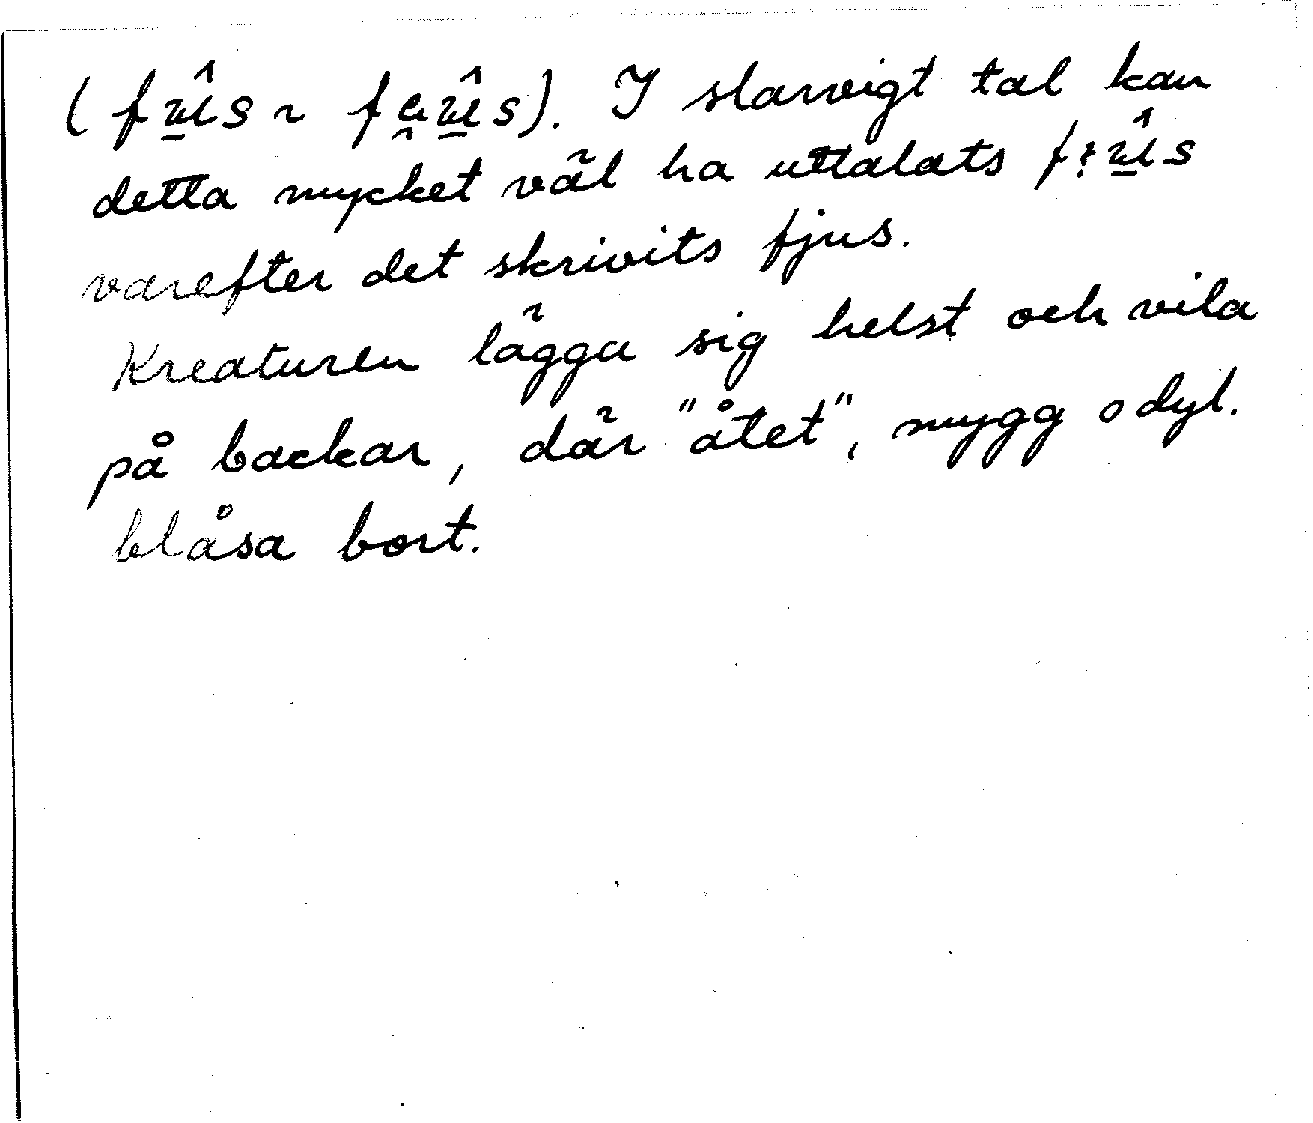 (fû̲s ~ fe̯û̲s). I slarvigt tal kan
detta mycket väl ha uttalats fi̯û̲s
varefter det skrivits fjus.
Kreaturen lägga sig helst och vila
på backar, där "åtet", mygg o dyl.
blåsa bort.